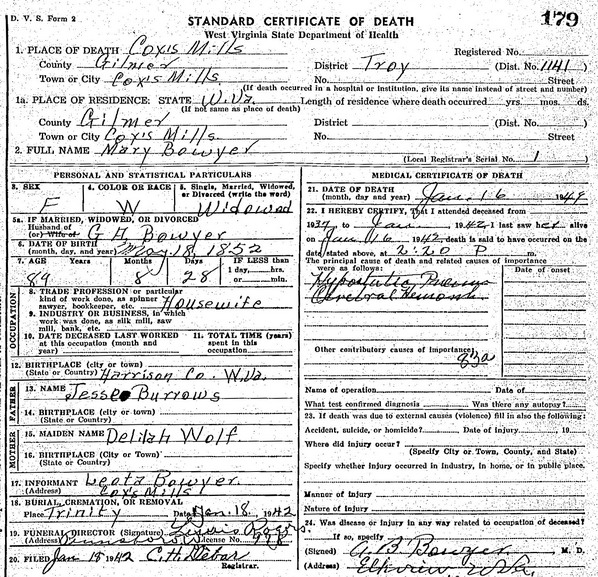 D. V. S. Form 2
STANDARD CERTIFICATE OF DEATH
179
West Virginia State Department of Health
1. PLACE OF DEATH Cox's Mills Registered No.
County Gilmer District Troy (Dist. No. 1141
Town or City Cox's Mills No. Street
(If death occurred in a hospital or institution, give its name instead of street and number)
1a. PLACE OF RESIDENCE: STATE W.Va. Length of residence where death occurred yrs. mos. ds.
(If not same as place of death)
County Gilmer District (Dist. No. )
Town or City Cox's Mills No. Street
2. FULL NAME Mary Bowyer
(Local Registrar's Serial No. 1 )
PERSONAL AND STATISTICAL PARTICULARS
3. SEX 4. COLOR OR RACE 5. Single, Married, Widowed, or Divorced (write the word)
F W Widowed
5a. IF MARRIED, WIDOWED, OR DIVORCED
Husband of
(or) Wife of G H Bowyer
6. DATE OF BIRTH
(month, day and year) May 18, 1852
7. AGE Years Months Days IF LESS than
1 day, hrs.
or min.
89 8 28
OCCUPATION
8. TRADE PROFESSION or particular
kind of work done, as spinner
sawyer, bookkeeper, etc. Housewife
9. INDUSTRY OR BUSINESS, in which
work was done, as silk mill, saw
mill, bank, etc.
10. DATE DECEASED LAST WORKED
at this occupation (month and
year)
11. TOTAL TIME (years)
spent in this
occupation
12. BIRTHPLACE (city or town)
(State or Country) Harrison Co. W.Va.
FATHER
13. NAME Jesse Burrows
14. BIRTHPLACE (city or town)
(State or Country)
MOTHER
15. MAIDEN NAME Delilah Wolf
16. BIRTHPLACE (City or Town)
(State or Country)
17. INFORMANT Leota Bowyer
(Address) Cox's Mills
18. BURIAL, CREMATION, OR REMOVAL
Place Trinity Date Jan. 18, 1942
19. FUNERAL DIRECTOR (Signature)
(Address) License No.
20. FILED Jan 18 1942 C. H. DeBar
Registrar.
MEDICAL CERTIFICATE OF DEATH
21. DATE OF DEATH
(month, day and year) Jan. 16 1942
22. I HEREBY CERTIFY, That I attended deceased from
1937 to Jan 1942. I last saw her alive
on Jan 16 1942. death is said to have occurred on the
date stated above, at 2:20 P m.
The principal cause of death and related causes of importance
were as follows: Date of onset
Hypostatic
Cerebral
Other contributory causes of importance:
83a
Name of operation Date of
What test confirmed diagnosis Was there any autopsy?
23. If death was due to external causes (violence) fill in also the following:
Accident, suicide, or homicide? Date of injury 19
Where did injury occur?
(Specify City or Town, County, and State)
Specify whether injury occurred in Industry, in home, or in public place.
Manner of injury
Nature of injury
24. Was disease or injury in any way related to occupation of deceased?
If so, specify
(Signed) A. B. Bowyer M. D.
(Address) Elkview W.Va.